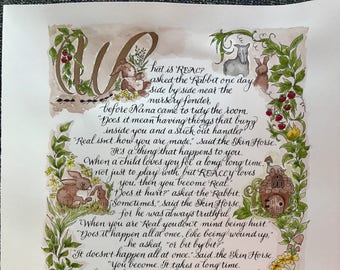 What is REAL?
asked the Rabbit one day
side by side near the
nursery fender,
before Nana came to tidy the room.
"Does it mean having things that buzz
inside you and a stick out handle?"
"Real isn't how you are made," said the Skin Horse.
"It's a thing that happens to you.
When a child loves you for a long, long time,
not just to play with, but REALLY loves
you, then you become Real.
"Does it hurt?" asked the Rabbit.
"Sometimes," said the Skin Horse
for he was always truthful.
"When you are Real you don't mind being hurt.
"Does it happen all at once, like being wound up,"
he asked, "or bit by bit?"
"It doesn't happen all at once," said the Skin Horse
"You become. It takes a long time.